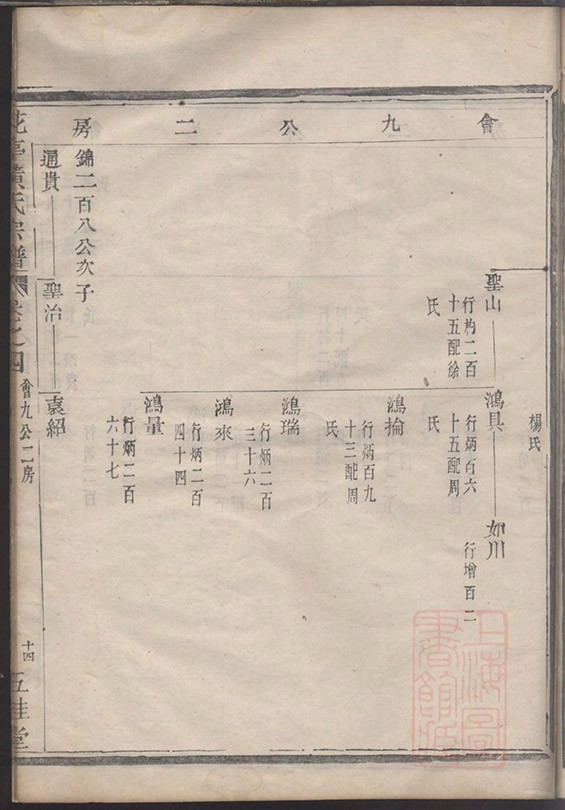 會九公二房
楊氏
聖山
行杓二百
十五配徐
氏
鴻具
行炳百六
十五配周
氏
如川
行增百二
鴻掄
行炳百九
十三配周
氏
鴻瑞
行炳二百
三十六
鴻來
行炳二百
四十四
鴻量
行炳二百
六十七
錦二百八公次子
通貴
聖治
袁紹
黃氏宗譜
卷之四
會九公二房
十四
五桂堂
上海圖書館藏